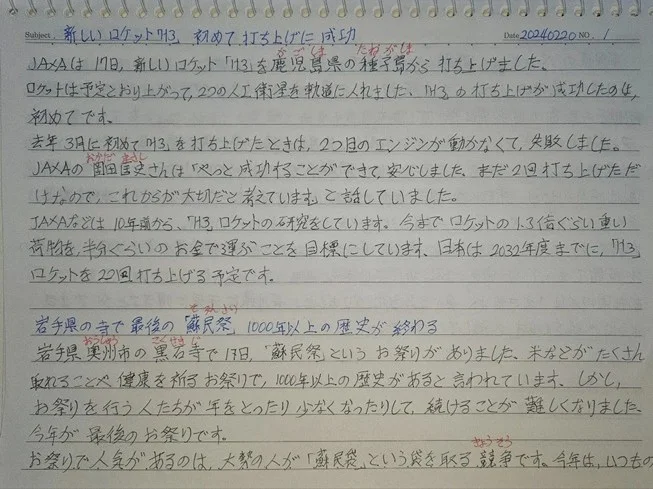 Subject 新しいロケット「H3」 初めて打ち上げに成功 Date 20240220 NO. 1
かごしま たねがしま
JAXAは17日、新しいロケット「H3」を鹿児島県の種子島から打ち上げました。
ロケットは予定どおり上がって、2つの人工衛星を軌道に入れました。「H3」の打ち上げが成功したのは、
初めてです。
去年3月に初めて「H3」を打ち上げたときは、2つ目のエンジンが動かなくて、失敗しました。
おかだ まさし
JAXAの岡田匡史さんは「やっと成功することができて、安心しました。まだ2回打ち上げただ
けなので、これからが大切だと考えています」と話していました。
JAXAなどは10年前から、「H3」ロケットの研究をしています。今までロケットの1.3倍ぐらい重い
荷物を、半分ぐらいのお金で運ぶことを目標にしています。日本は2032年度までに、「H3」
ロケットを22回打ち上げる予定です。
そみんさい
岩手県の寺で最後の「蘇民祭」 1000年以上の歴史が終わる
おうしゅう こくせきじ
岩手県奥州市の黒石寺で17日、「蘇民祭」というお祭りがありました。米などがたくさん
取れることや健康を祈るお祭りで、1000年以上の歴史があると言われています。しかし、
お祭りを行う人たちが年をとったり少なくなったりして、続けることが難しくなりました。
今年が最後のお祭りです。
きょうそう
お祭りで人気があるのは、大勢の人が「蘇民袋」という袋を取る競争です。今年は、いつもの